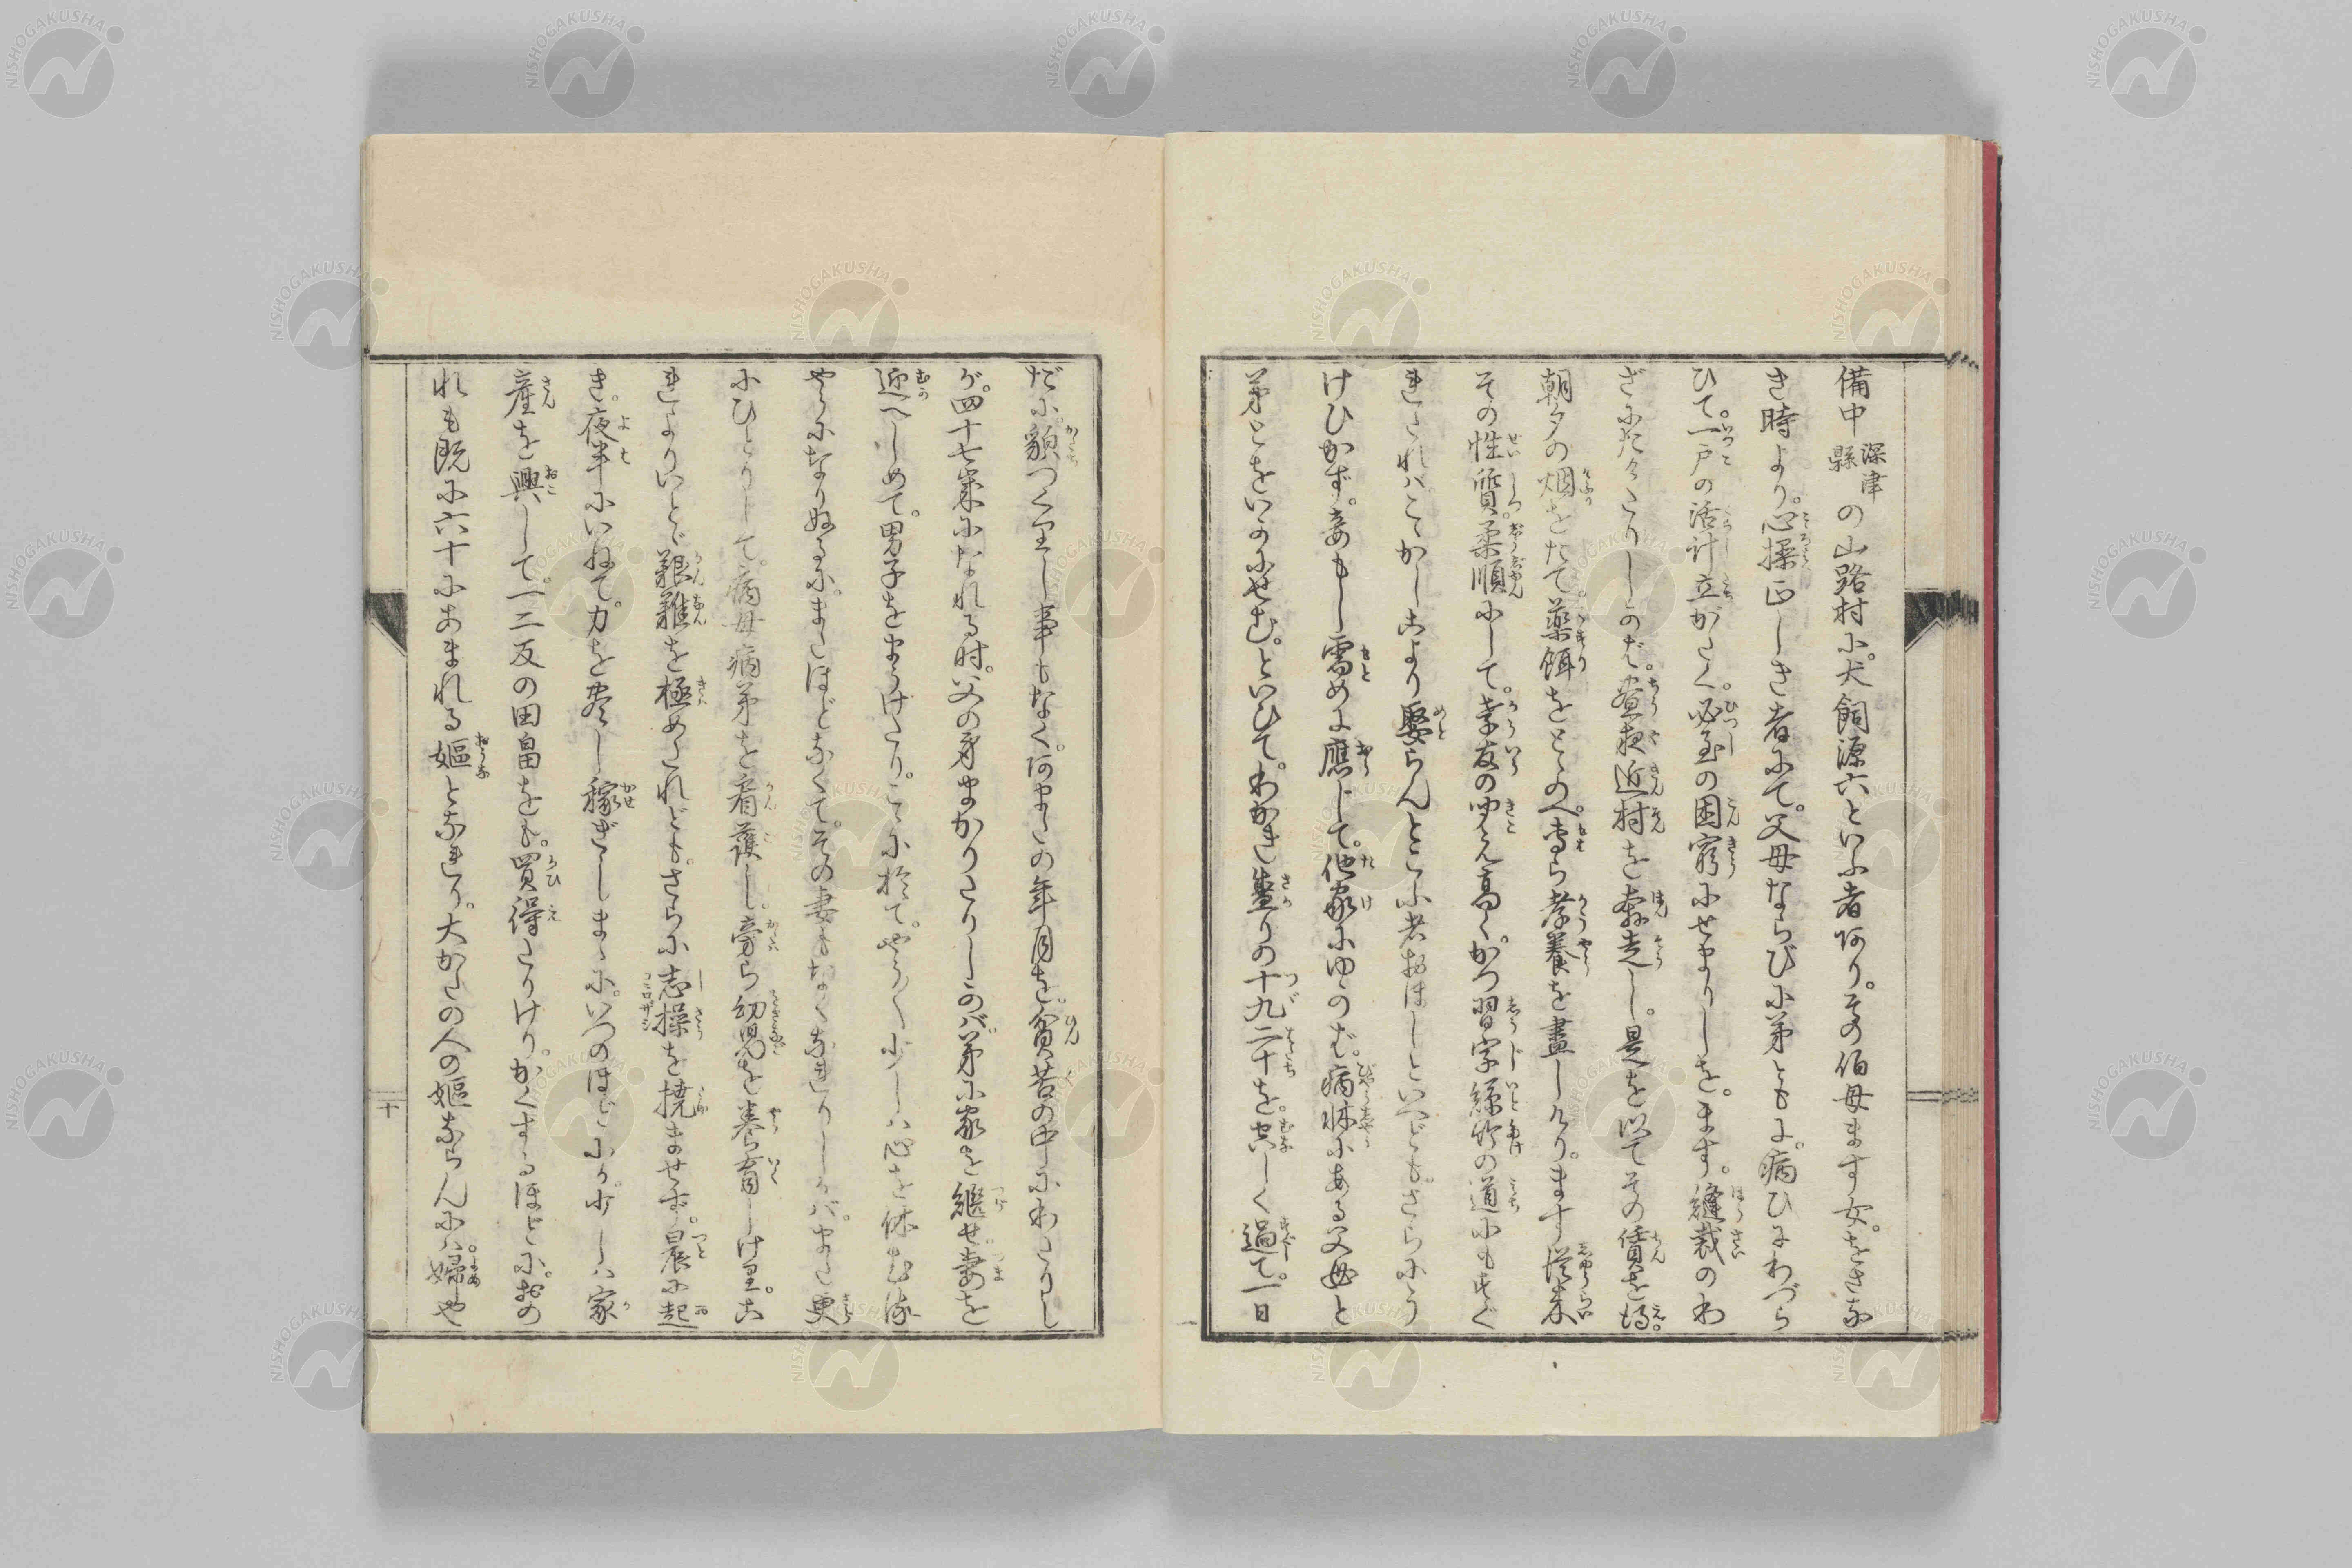 備中深津縣の山路村に。犬飼源六といふ者あり。その伯母ます女。をさな
き時より。心操正しき者にて。父母ならびに弟とも に。病ひにわづら
ひて。一戸の活計立がたく。必至の困窮にせまりしを。ます。縫裁のわ
ざにたくたりしかば。昼夜近村を奔走し。是を以てその賃を得。
朝夕の烟をたて。薬餌をとゝのへ。専ら孝養を盡しけり。ます従来
その性質。柔順にして。孝友の聞え高く。かつ習字絲竹の道にもすぐ
れたれバこゝかしこより娶らんとこふ者おほしといへども。さらにう
けひかず。妾もし需めに應じて。他家にゆかば。病牀にある父母と
弟とをいかにせむ。といひて。わかき盛りの十九二十を。空しく過て。一日
だに。貌つくりし事もなく。あまたの年月を。貧苦の中にわたりし
が。四十七歳になれる時。父の身まかりたりしかバ。弟に家を継せ妻を
迎へしめて。男子をまうけたり。こゝに於て。やうく少しハ心を休む様
やうになりぬるに。またほどなくて。その妻もなくなれりしかバ。また更
にひとりして。病母病弟を看護し。旁ら幼児を養育しけり。こ
れよりいとゞ艱難を極めたれども。さらに志操を撓ませず。晨に起
き。夜半にいねて。力を盡し稼ぎしまゝに。いつのほどにか。少しハ家
産を興して。一二反の田畠をも。買得たりけり。かくするほどに。おの
れも既に六十にあまれる嫗となれり。大かたの人の嫗ならんにハ。婦や
十
NISHOGAKUSHA